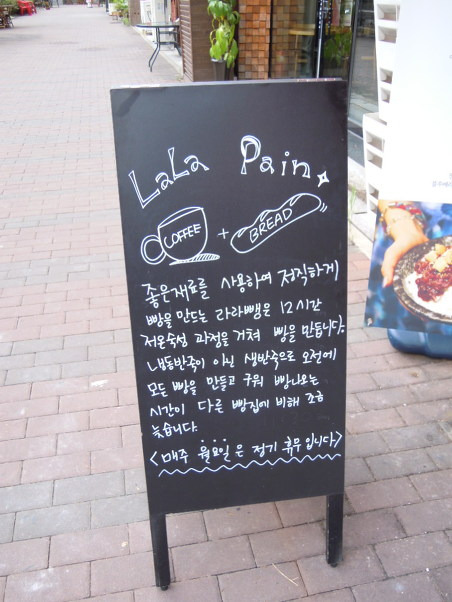 LaLa Pain
COFFEE + BREAD
좋은재료를 사용하여 정직하게
빵을 만드는 라라뺑은 12시간
저온숙성 과정을 거쳐 빵을 만듭니다.
냉동반죽이 아닌 생반죽으로 오전에
모든 빵을 만들고 구워 빵나오는
시간이 다른 빵집에 비해 조금
늦습니다.
<매주 월요일은 정기 휴무입니다>